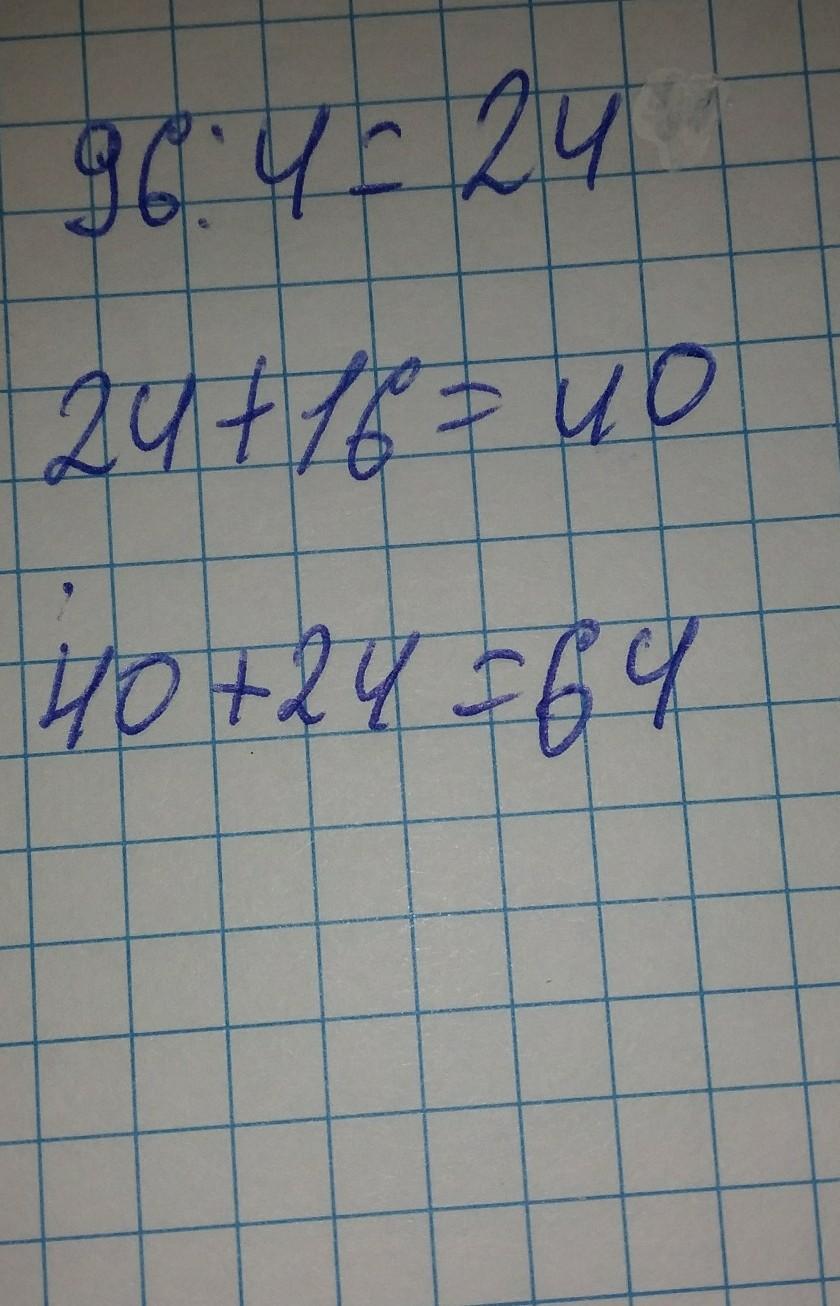 96:4=24
24+16=40
40+24=64